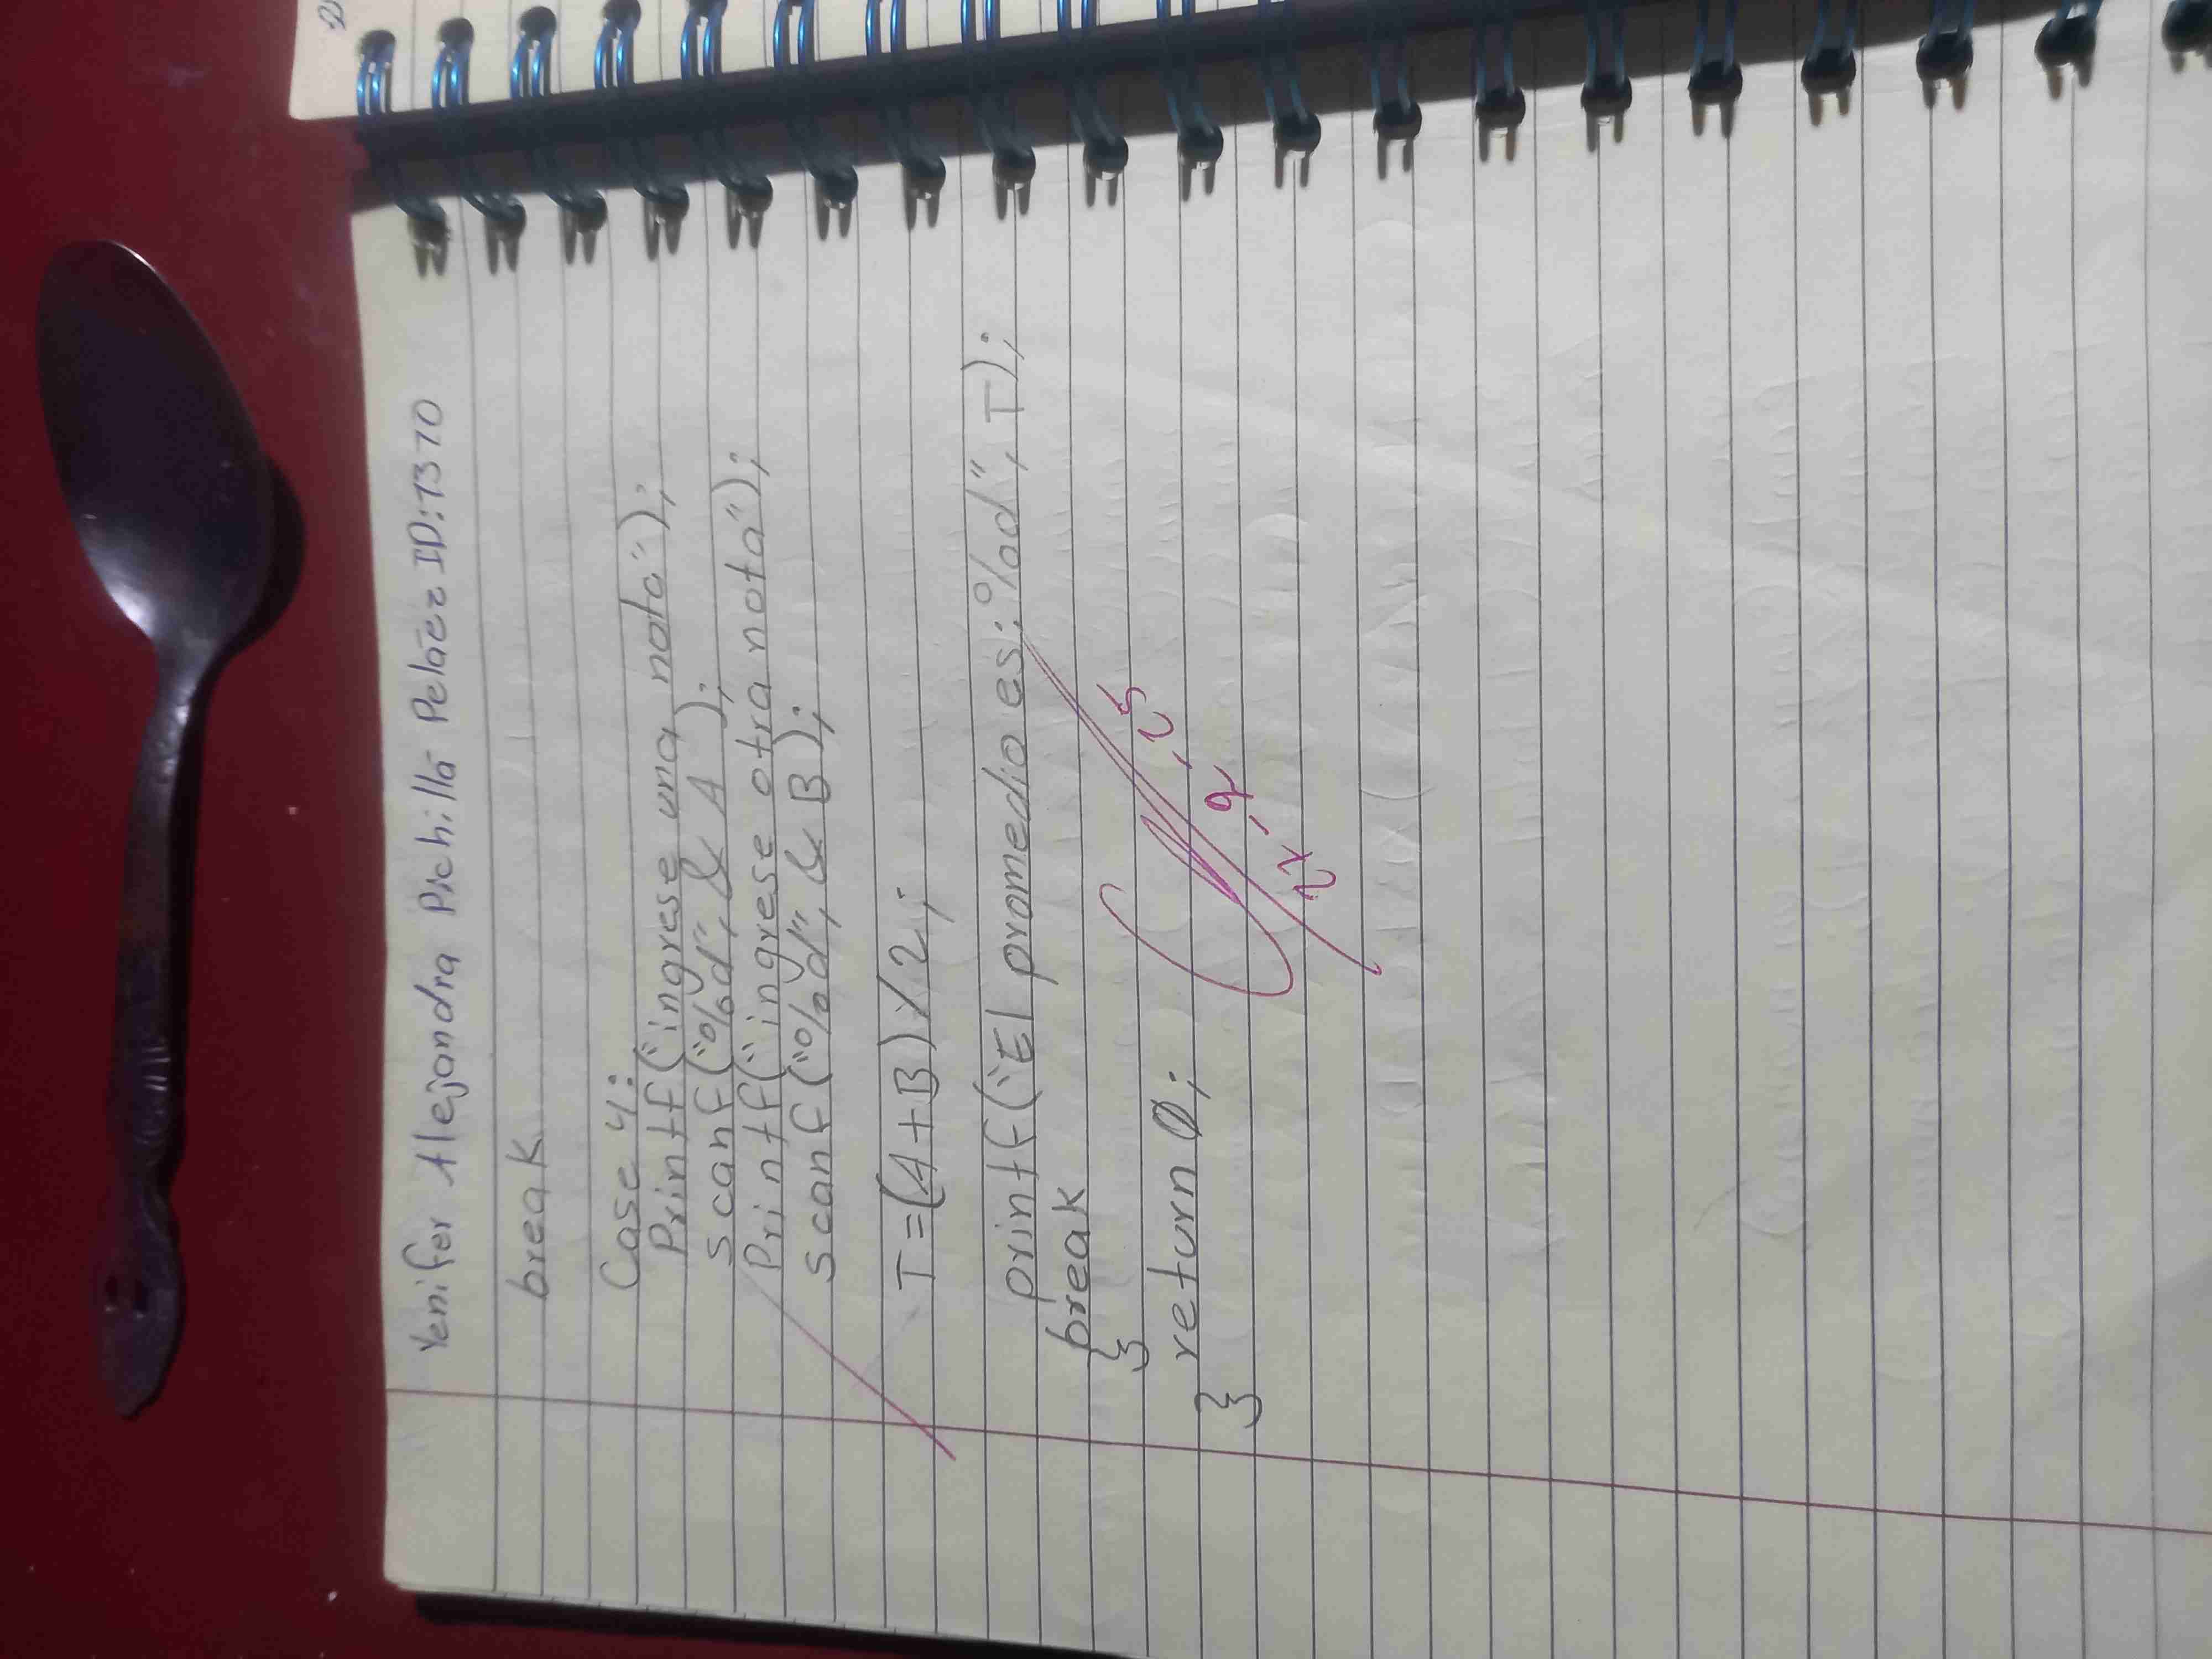 Yenifer Alejandra Pichillá Peláez ID:1370
break
Case 4:
Printf("ingrese una nota");
Scanf("%d", & A );
Printf("ingrese otra nota");
Scanf("%d", & B);
T=(A+B)/2;
printf("El promedio es: %d", T);
break
}
return 0;
}